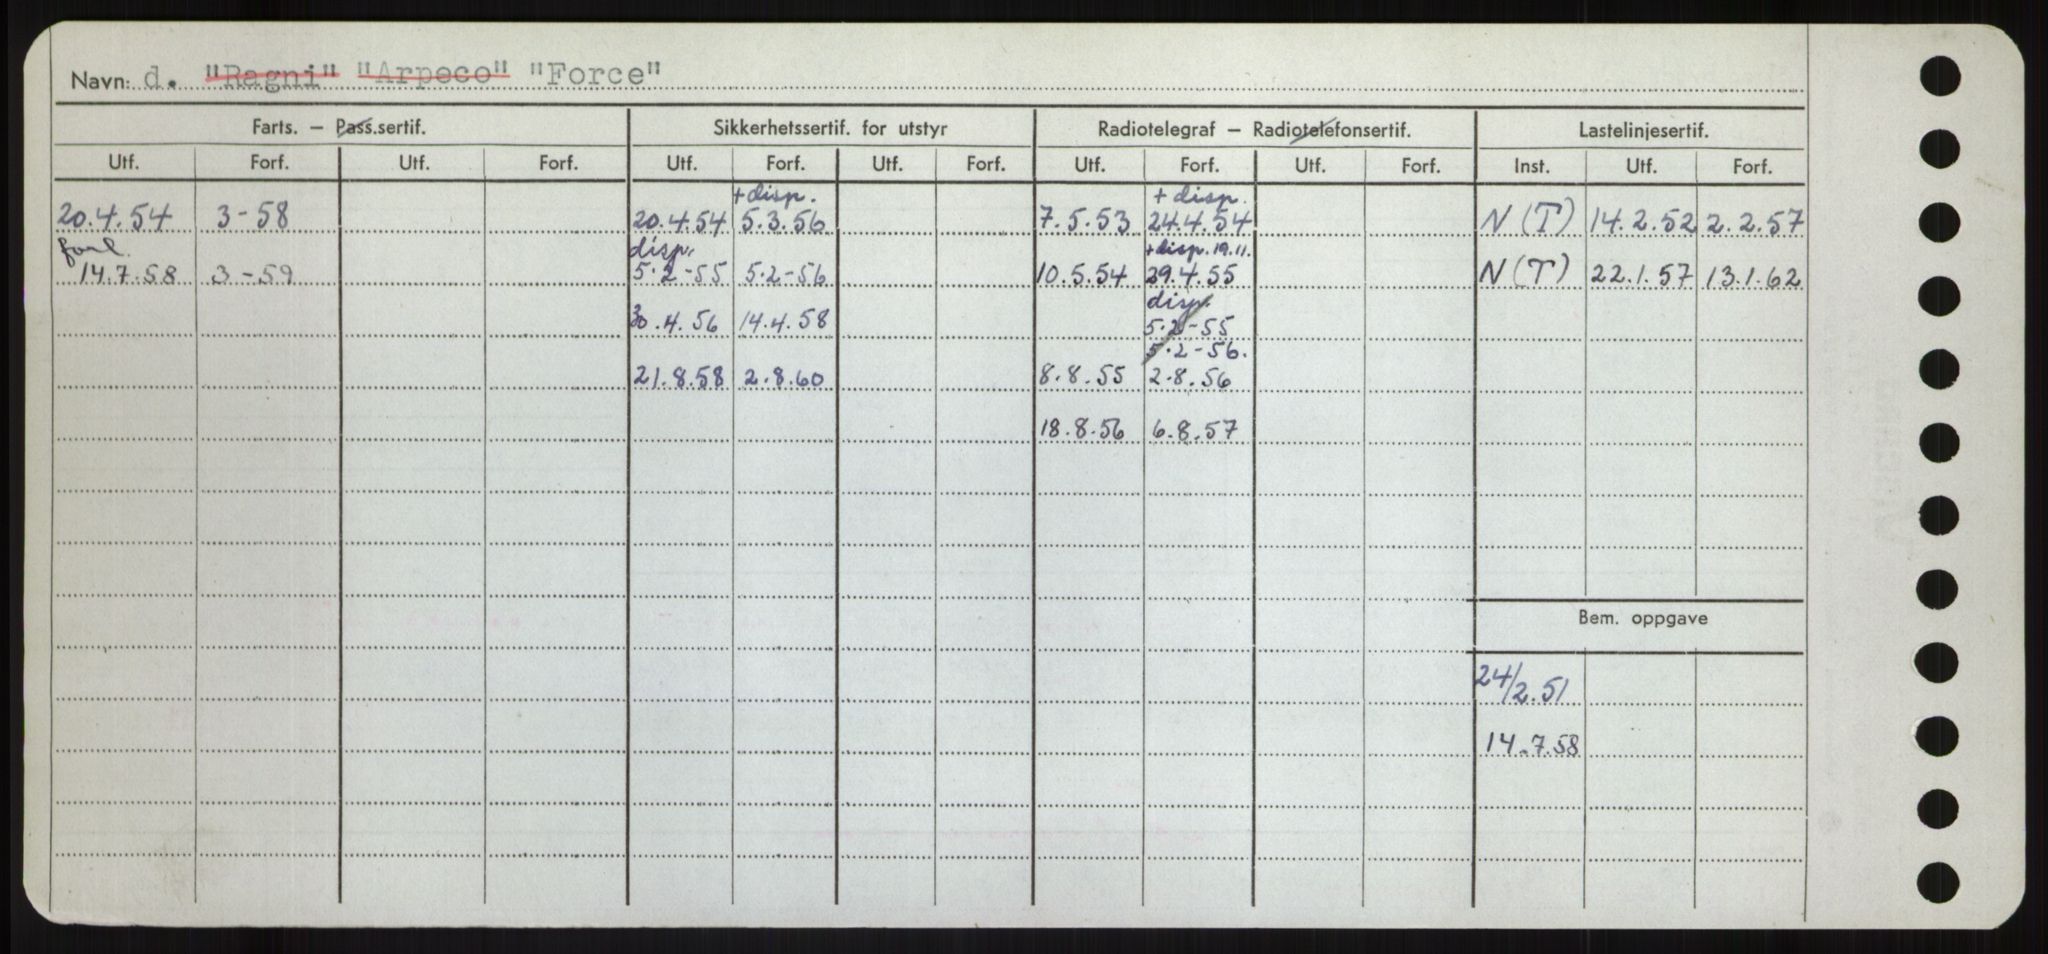 Navn: d. "Ragni" "Arpeco" "Force"
Farts. – Pass.sertif. Sikkerhetssertif. for utstyr Radiotelegraf – Radiotelefonsertif. Lastelinjesertif.
Utf. Forf. Utf. Forf. Utf. Forf. Utf. Forf. Utf. Forf. Utf. Forf. Inst. Utf. Forf.
+ disp. + disp.
20.4.54 3-58 20.4.54 5.3.56 7.5.53 24.4.54 N(T) 14.2.52 2.2.57
disp. + disp. 19.11.
14.7.58 3-59 5.2-55 5.2-56 10.5.54 29.4.55 N(T) 22.1.57 13.1.62
disp.
30.4.56 14.4.58 5.2-55
5.2-56.
21.8.58 2.8.60 8.8.55 2.8.56
18.8.56 6.8.57
Bem. oppgave
24/2.51
14.7.58